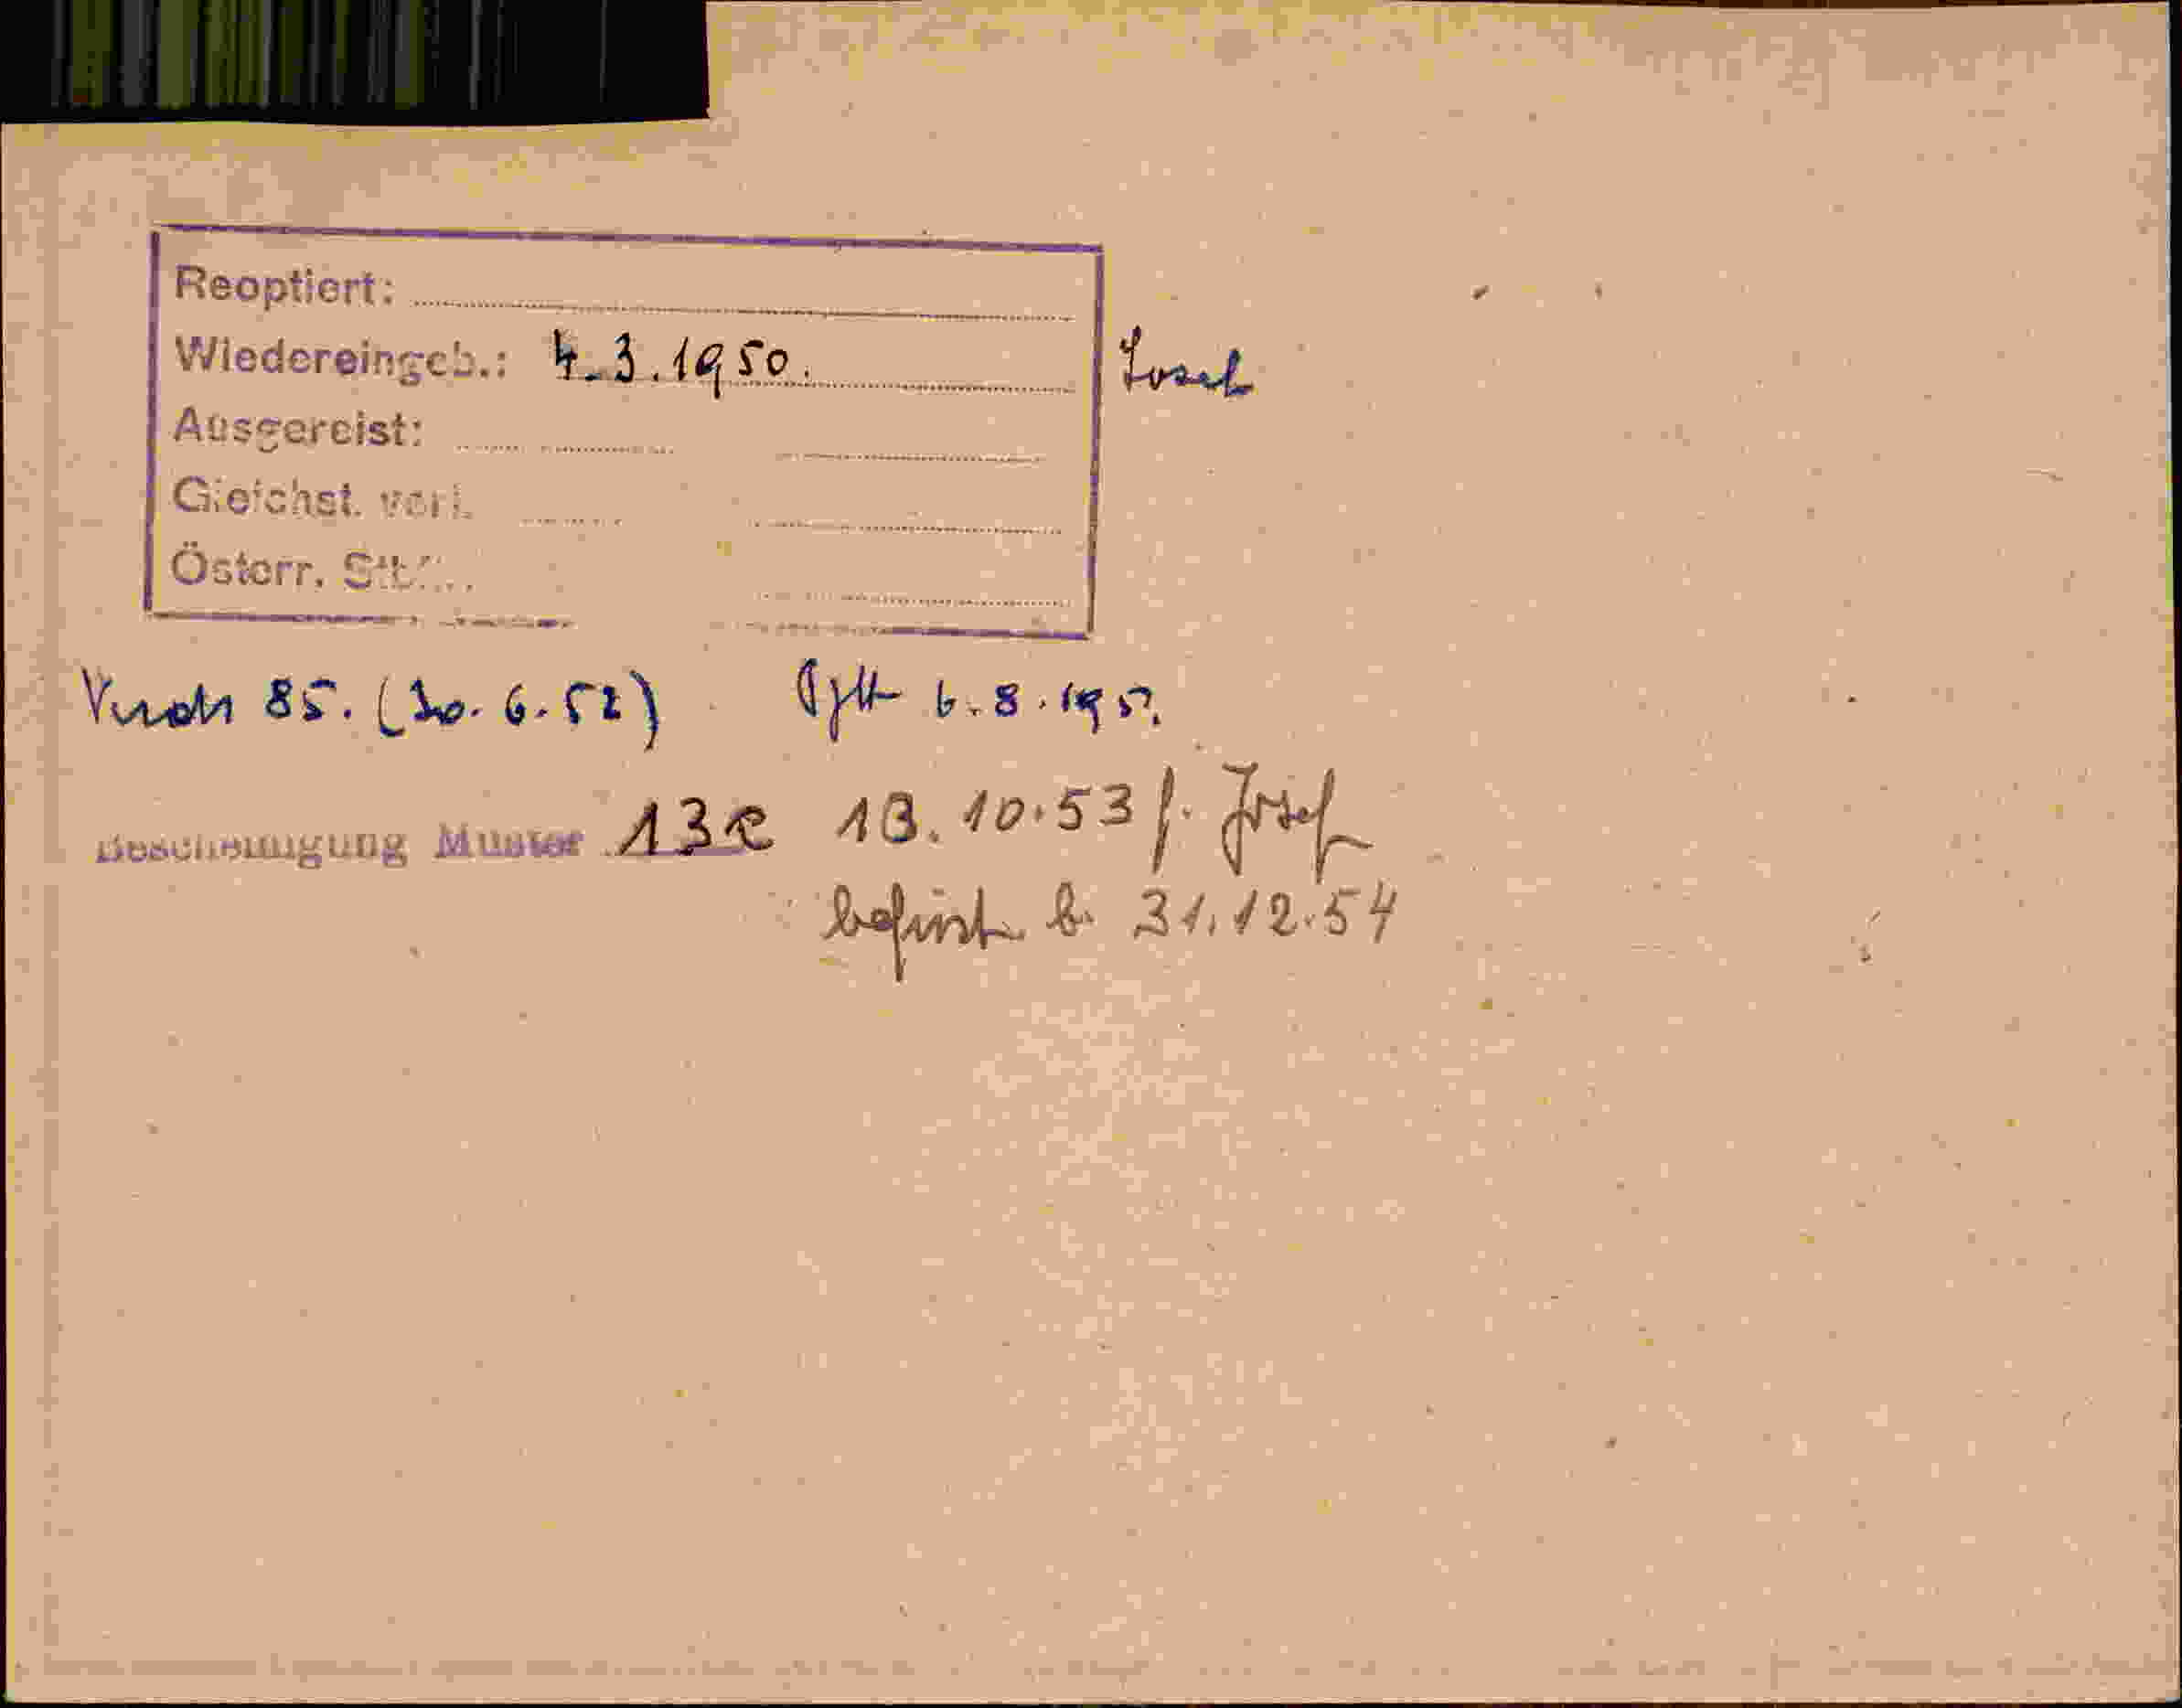 Reoptiert:
Wiedereingeb.: 4.3.1950. Josef
Ausgereist:
Gleichst. verl.
Österr. Stb.
85. (30.6.52) 6.8.195
Bescheinigung Muster 13e 13.10.53 f. Josef
befrist. b. 31.12.54